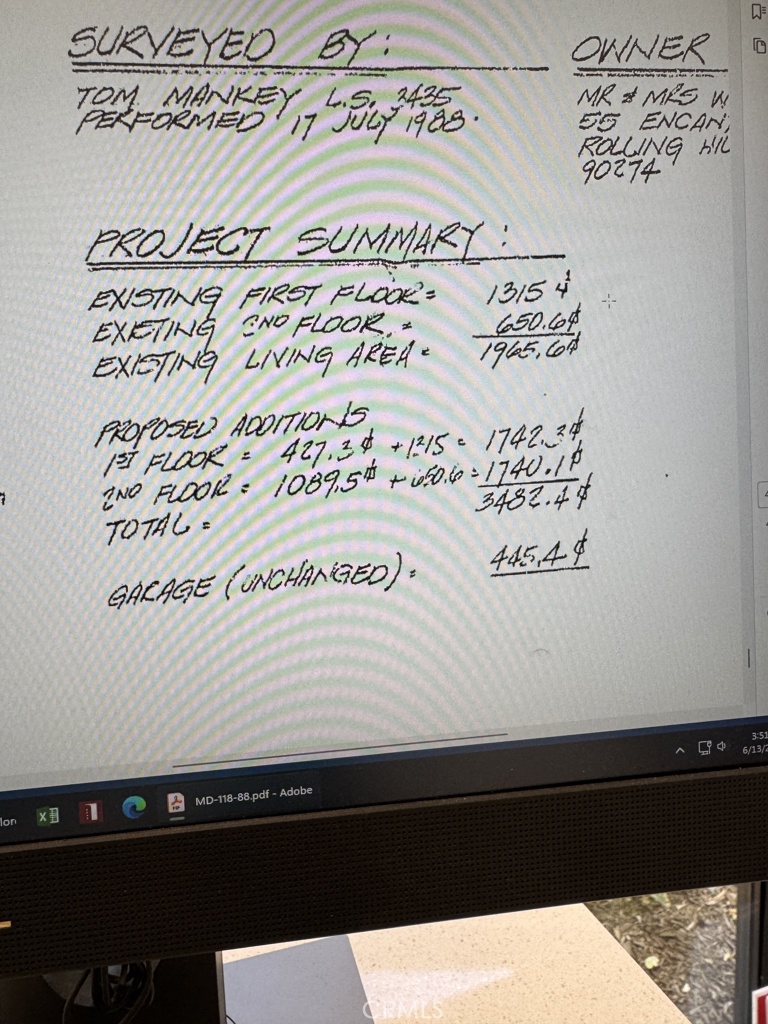 SURVEYED BY:
TOM MANKEY L.S. 2435
PERFORMED 17 JULY 1988.
OWNER
MR & MRS W
55 ENCAN
ROLLING HIL
90274
PROJECT SUMMARY:
EXISTING FIRST FLOOR = 1315 ⌀
EXISTING 2ND FLOOR = 650.6 ⌀
EXISTING LIVING AREA = 1965.6 ⌀
PROPOSED ADDITIONS
1ST FLOOR = 427.3 ⌀ + 1315 = 1742.3 ⌀
2ND FLOOR = 1089.5 ⌀ + 650.6 = 1740.1 ⌀
TOTAL = 3482.4 ⌀
GARAGE (UNCHANGED) = 445.4 ⌀
3:51
6/13/2
MD-118-88.pdf - Adobe
CRMLS